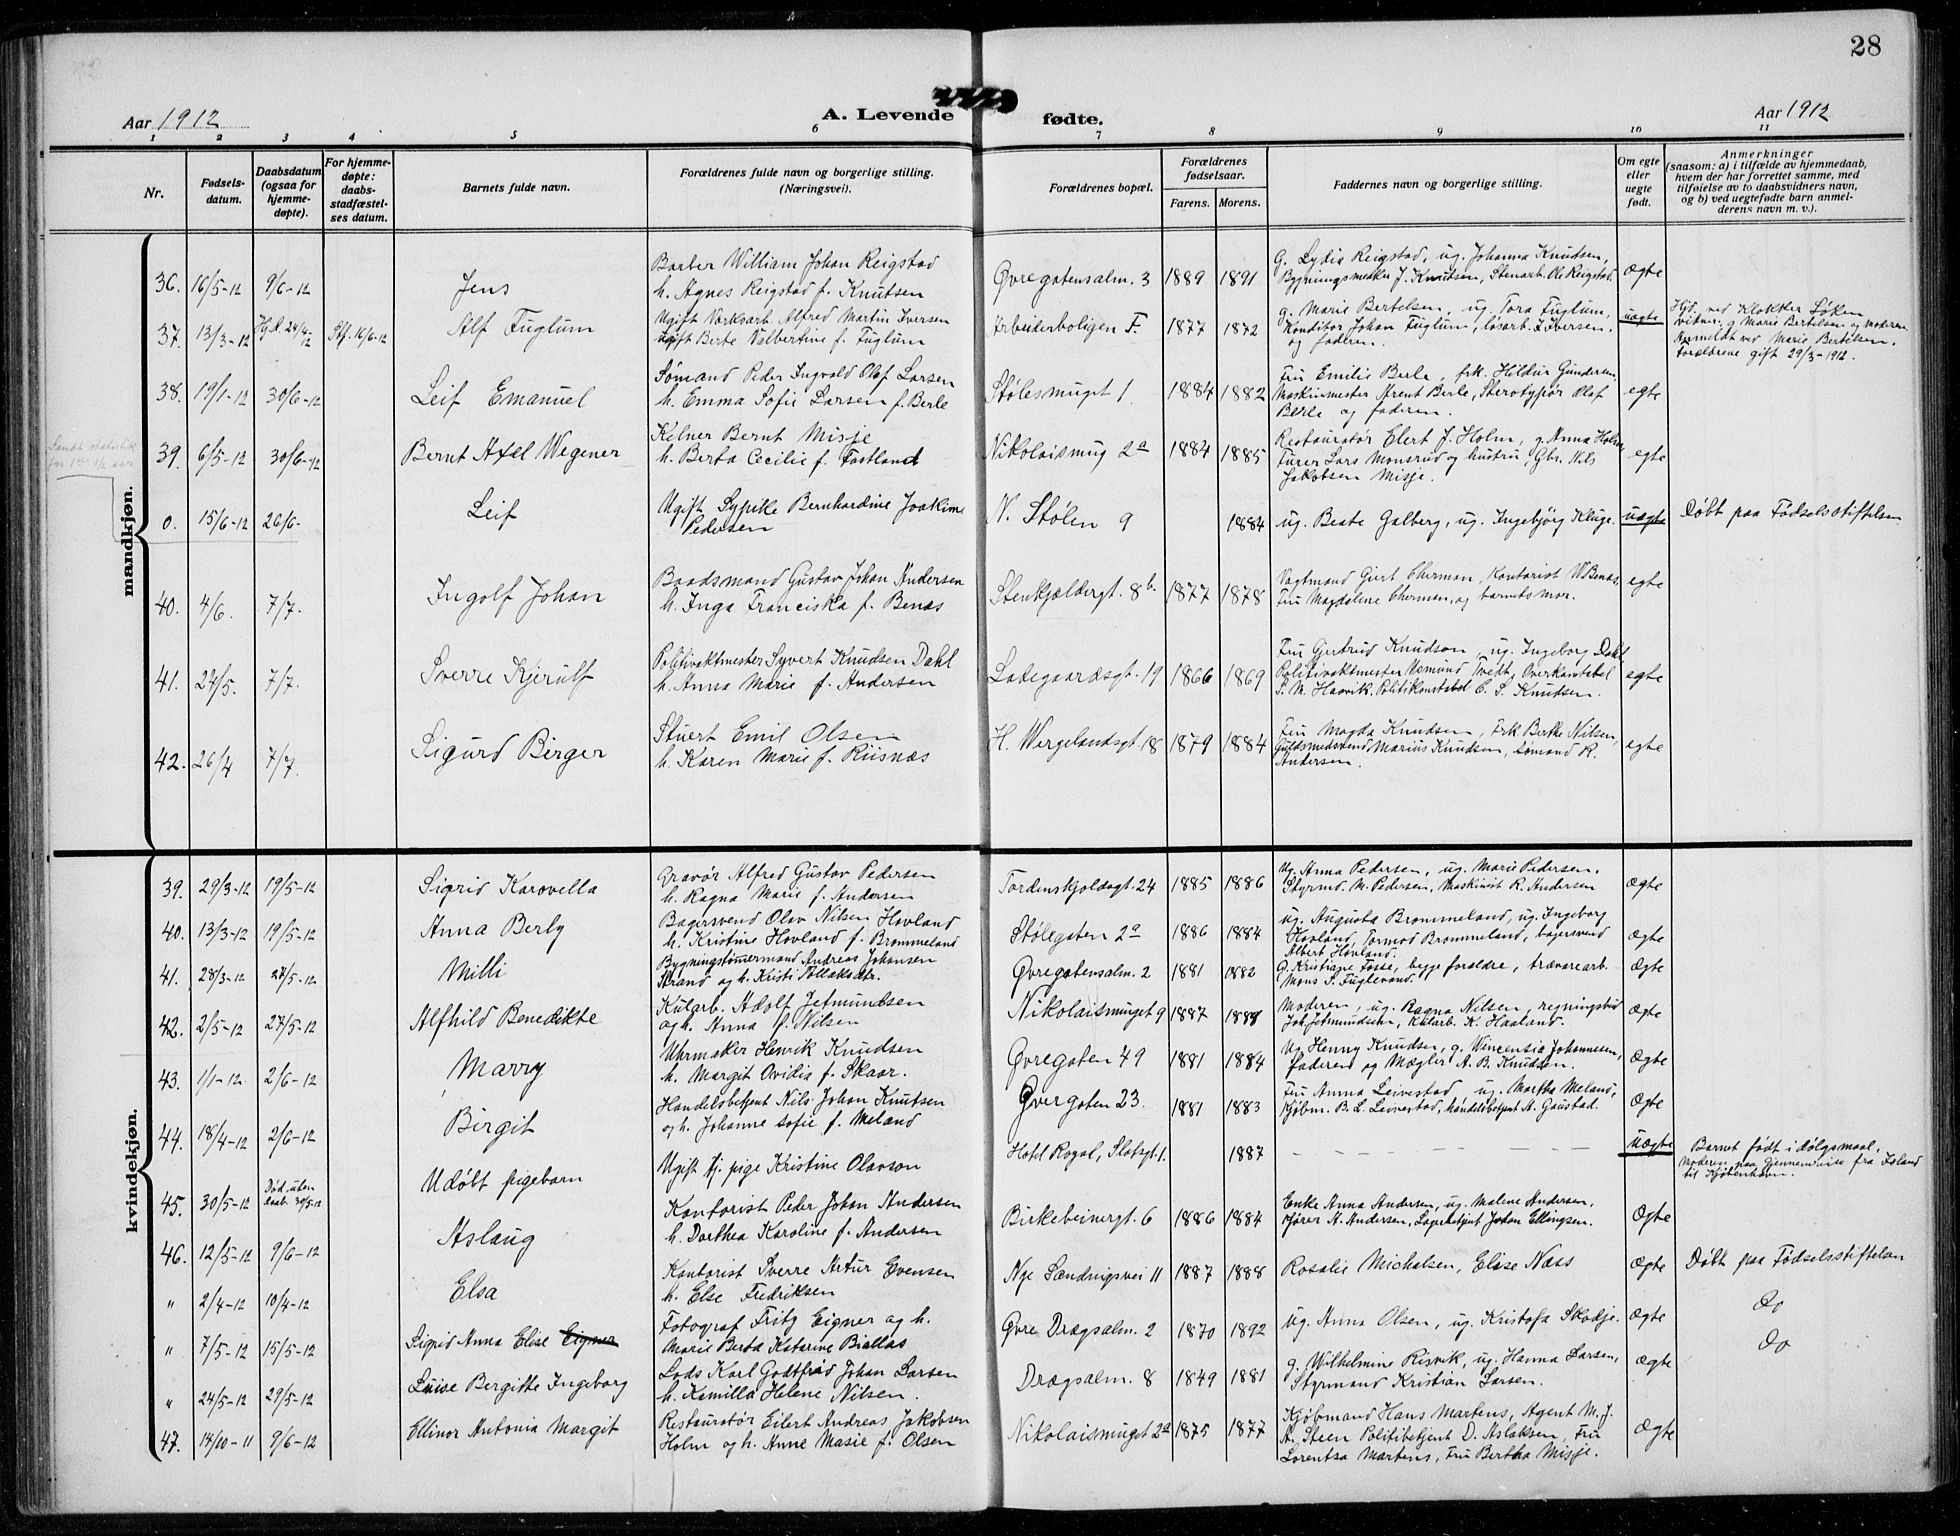 28
Aar 1912
A. Levende fødte.
Aar 1912
1 2 3 4 5 6 7 8 9 10 11
Nr.
Fødsels-datum.
Daabsdatum (ogsaa for hjemme-døpte).
For hjemme-døpte: daabs-stadfæstel-ses datum.
Barnets fulde navn.
Forældrenes fulde navn og borgerlige stilling. (Næringsvei).
Forældrenes bopæl.
Forældrenes fødselsaar.
Farens. Morens.
Faddernes navn og borgerlige stilling.
Om egte eller uegte født.
Anmerkninger
(saasom: a) i tilfælde av hjemmedaab,
hvem der har forrettet samme, med
tilføielse av to daabsvidners navn,
og b) ved uegtefødte barn anmel-
derens navn m. v.).
mandkjøn.
36. 16/5-12 9/6-12 Jens
Barber William Johan Reigstad
h. Agnes Reigstad f. Knutsen
Øvregatensalm. 3 1889 1891
G. Lydia Reigstad, ug. Johanna Knutsen,
Bygningssnekker J. Knutsen, Stenarb. Ol. Reigstad.
Ægte
37. 13/3-12 Hj.d. 24/4-12 Stf. 16/6-12 Alf Fuglum
Ugift Verksarb. Alfred Martin Iversen
Ugift Berte Valbertine f. Fuglum
Arbeiderboligen F. 1877 1872
g. Marie Bertelsen, ug. Tora Fuglum,
Konditor Johan Fuglum, løsarb. Iversen,
og faderen.
uægte
Hjd. ved Klokker Løken
vidner. g Marie Bertelsen og moderen
Anmeldt ved Marie Bertelsen.
Forældrene gift 29/3-1912.
38. 19/1-12 30/6-12 Leif Emanuel
Sømand Peder Ingvald Olaf Larsen
h. Emma Sofie Larsen f. Berle
Stølesmuget 1 1884 1882
Fru Emilie Berle, frk. Hildur Gundersen,
Maskinmester Arent Berle, Sterotypør Olaf
Berle og faderen.
egte
Sendt statistik
for 1ste 1/2 aar
39. 6/5-12 30/6-12 Bernt Axel Wegener
Kelner Bernt Misje
h. Berta Cecilie f. Fastland
Nikolaismug 2a 1884 1885
Restauratør Elert J. Holm, g. Anna Holm
Fører Lars Monsrud og hustru, Gbr. Nils
Jakobsen Misje.
egte
0. 15/6-12 26/6- Leif
Ugift Sypike Bernhardine Joakime
Pedersen
N. Stølen 9 1884
ug. Beate Galberg, ug. Ingebjörg Kluge.
uægte
Døbt paa Fødselsstiftelsen
40. 4/6. 7/7. Ingolf Johan
Baadsmand Gustav Johan Andersen
h. Inga Franciska f. Benæs
Stenkjeldergt. 8b. 1877 1878
Vagtmand Giert Cherman, Kontorist W Benæs,
Fru Magdalene Cherman, og barnets mor.
egte
41. 24/5. 7/7. Sverre Kjerulf
Politivaktmester Syvert Knudsen Dahl
h. Anna Marie f. Andersen
Ladegaardsgt. 19 1866 1869
Fru Gjertrud Knudson, ug. Ingeborg Dahl
Politivaktmester Asmund Tveit, Overkonstabel
S. M. Haavik Politikonstabel C. S. Knutsen.
egte
42. 26/4 7/7. Sigurd Birger
Stuert Emil Olsen
h. Karen Marie f. Riisnæs
H. Wergelandsgt. 18 1879 1884
Fru Magda Knudsen, Frk Berthe Nilsen,
Guldsmedsvend Marius Knudsen, Sømand R.
Andersen.
egte
kvindekjøn.
39. 29/3-12 19/5-12 Sigrid Karovella
Gravør Alfred Gustav Pedersen
h. Ragna Marie f. Andersen
Tordenskjoldsgt. 24 1885 1886
Ug. Anna Pedersen, ug. Marie Pedersen.
Styrmd M. Pedersen, Maskinist R. Andersen
Ægte
40. 13/3-12 19/5-12 Anna Berby
Bagersvend Olav Nilsen Hovland
h. Kristine Hovland f. Brommeland
Stølegaten 2a 1886 1884
ug. Augusta Brommeland, ug. Ingeborg
Hovland, Tormod Brommeland, bagersvend
Albert Hovland.
Ægte
41. 28/3-12 27/5-12 Milli
Bygningstømmermand Andreas Johansen
Strand og h. Kristi Aslaksdtr.
Øvregatensalm. 2 1881 1882
G. Kristiane Fosse, begge forældre, trævarearb.
Mons S. Fuglesund.
Ægte
42. 2/5-12 27/5-12 Alfhild Benedikte
Kularb. Adolf Jetmundsen
og h. Anna f. Nilsen
Nikolaismuget 9 1887 1889
Moderen, ug. Ragna Nilsen, regningsbud
Joh. Jetmundsen, Kularb. K. Haaland.
Ægte
43. 1/1-12. 2/6-12 Marry
Uhrmaker Henrik Knudsen
h. Margit Ovidia f. Skaar.
Øvregaten 49 1881 1884
Ug Henny Knudsen, g. Wincensia Johannesen,
faderen og Mægler A. B. Knudsen.
Ægte
44. 18/4-12 2/6-12 Birgit
Handelsbetjent Nils Johan Knutsen
og h. Johanne Sofie f. Meland
Øvregaten 23. 1881 1883
Fru Anna Leivestad, ug. Martha Meland,
Kjøbm. B. L. Leivestad, handelsbetjent A. Gaustad.
Ægte
45. 30/5-12 Død uten daab 30/5-12 Udöbt pigebarn
Ugift tj. pige Kristine Olavson
Hotel Royal, Slotsgt 1. 1887
uægte
Barnet født i dølgsmaal,
Moderen paa gjennemreise fra Island
til Kjøbenhavn.
46. 12/5-12 9/6-12 Aslaug
Kontorist Peder Johan Andersen
h. Dorthea Karoline f. Andersen
Birkebeinergt. 6 1886 1884
Enke Anna Andersen, ug. Malene Andersen,
Kjører A. Andersen, Lagerbetjent Johan Ellingsen.
Ægte
" 2/4-12 10/4-12 Elsa
Kontorist Sverre Artur Evensen
h. Else Fredriksen
Nye Sandviksvei 11 1887 1888
Rosalie Michalsen, Elise Næss
Ægte
Døbt paa Fødselsstiftelsen
" 7/5-12 15/5-12 Sigrid Anna Elise Eigner
Fotograf Fritz Eigner og h.
Marie Berta Katarine Biallas
Øvre Drægsalm. 2 1870 1892
ug. Anna Olsen, ug. Kristofa Skodje.
Ægte
do
" 24/5-12 29/5-12 Luise Bergitte Ingeborg
Lods Karl Godtfred Johan Larsen
h. Kamilla Helene Nilsen.
Drægsalm. 8 1849 1881
g. Wilhelmine Risvik, ug. Hanna Larsen,
Styrmand Kristian Larsen.
Ægte
do
47. 14/10-11 9/6-12 Ellinor Antonia Margit
Restauratør Eilert Andreas Jakobsen
Holm og h. Anne Marie f. Olsen
Nikolaismuget 2a 1875 1877
Kjøbmand Hans Martens, Agent M. J.
A. Steen Politibetjent D. Aslaksen, Fru
Lorentsa Martens, Fru Bertha Misje.
Ægte